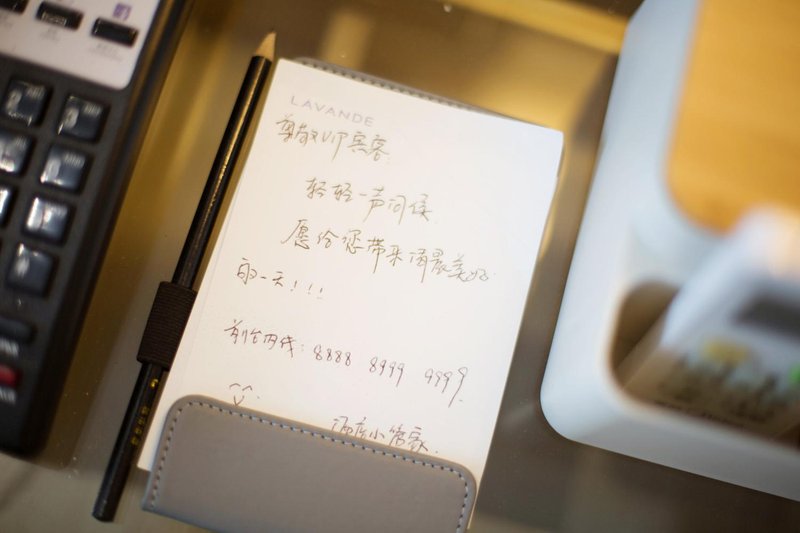 LAVANDE
尊敬VIP宾客
轻轻一声问候
愿给您带来 最美好
的一天!!!
前台内线: 8888 8999 9999
酒店小管家